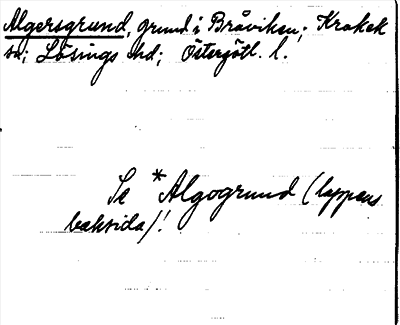 Algersgrund, grund i Bråviken; Krokek
sn; Lösings hd; Östergötl. l.
Se *Algogrund (lappens
baksida)!